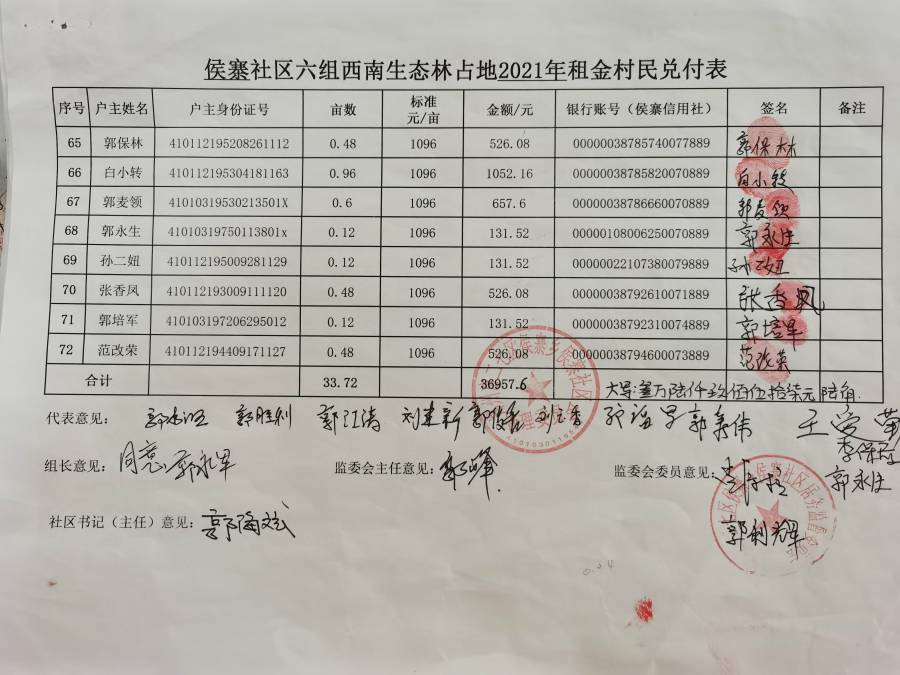 侯寨社区六组西南生态林占地2021年租金村民兑付表
序号 户主姓名 户主身份证号 亩数 标准元/亩 金额/元 银行账号（侯寨信用社） 签名 备注
65 郭保林 410112195208261112 0.48 1096 526.08 00000038785740077889 郭保林
66 白小转 410112195304181163 0.96 1096 1052.16 00000038785820070889 白小转
67 郭麦领 41010319530213501X 0.6 1096 657.6 00000038786660070889 郭麦领
68 郭永生 41010319750113801x 0.12 1096 131.52 00000108006250070889 郭永生
69 孙二妞 410112195009281129 0.12 1096 131.52 00000022107380079889 孙二妞
70 张香凤 410112193009111120 0.48 1096 526.08 00000038792610071889 张香凤
71 郭培军 410103197206295012 0.12 1096 131.52 00000038792310074889 郭培军
72 范改荣 410112194409171127 0.48 1096 526.08 00000038794600073889 范改荣
合计 33.72 36957.6 大写:叁万陆仟玖佰伍拾柒元陆角
代表意见： 郭胜利 郭江涛 刘建新
组长意见：同意 郭永军 监委会主任意见： 监委会委员意见： 郭永生
社区书记（主任）意见：
郭利辉
0.24